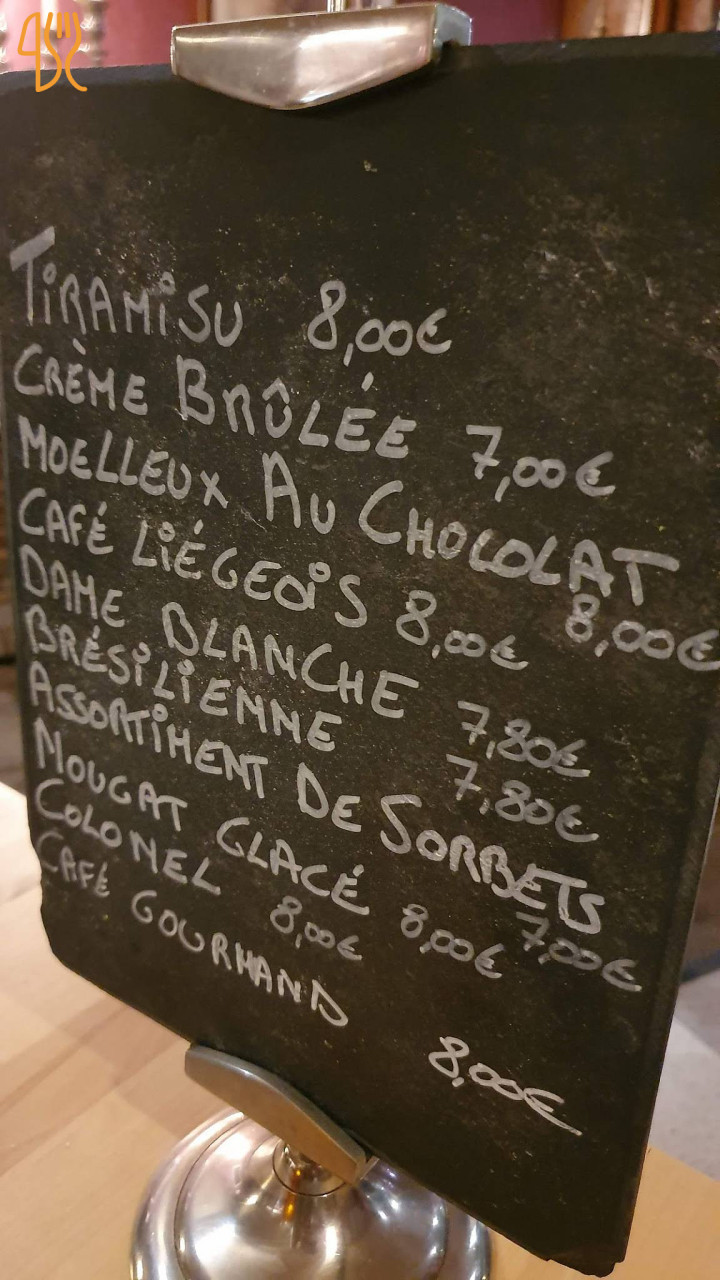 TiRAMiSU 8,00€
CRÈME BRÛLÉE 7,00€
MOELLEUX AU CHOCOLAT 8,00€
CAFÉ LiÉGEOiS 8,00€
DAME BLANCHE 7,80€
BRÉSiLiENNE 7,80€
ASSORTiMENT DE SORBETS 7,00€
NOUGAT GLACÉ 8,00€
COLONEL 8,00€
CAFÉ GOURMAND 8,00€